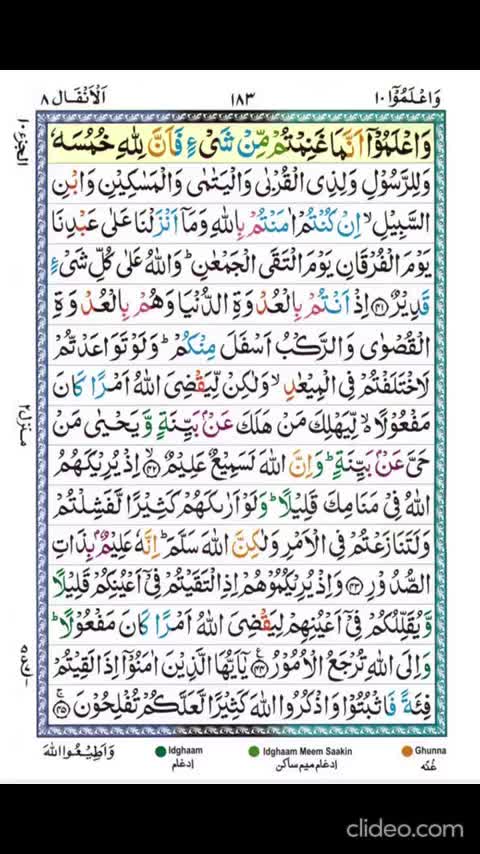 وَاعْلَمُوْٓا ١٠ ١٨٣ اَلْاَنْفَال ٨
وَاعْلَمُوْٓا اَنَّمَا غَنِمْتُمْ مِّنْ شَیْءٍ فَاَنَّ لِلّٰهِ خُمُسَهٗ
وَلِلرَّسُوْلِ وَلِذِی الْقُرْبٰی وَالْیَتٰمٰی وَالْمَسٰكِیْنِ وَابْنِ
السَّبِیْلِ ۙ اِنْ كُنْتُمْ اٰمَنْتُمْ بِاللّٰهِ وَمَاۤ اَنْزَلْنَا عَلٰی عَبْدِنَا
یَوْمَ الْفُرْقَانِ یَوْمَ الْتَقَی الْجَمْعٰنِ ؕ وَاللّٰهُ عَلٰی كُلِّ شَیْءٍ
قَدِیْرٌ ﴿۴۱﴾ اِذْ اَنْتُمْ بِالْعُدْوَةِ الدُّنْیَا وَهُمْ بِالْعُدْوَةِ
الْقُصْوٰی وَالرَّكْبُ اَسْفَلَ مِنْكُمْ ؕ وَلَوْ تَوَاعَدْتُّمْ
لَاخْتَلَفْتُمْ فِی الْمِیْعٰدِ ۙ وَلٰكِنْ لِّیَقْضِیَ اللّٰهُ اَمْرًا كَانَ
مَفْعُوْلًا ۙ لِّیَهْلِكَ مَنْ هَلَكَ عَنْۢ بَیِّنَةٍ وَّیَحْیٰی مَنْ
حَیَّ عَنْۢ بَیِّنَةٍ ؕ وَاِنَّ اللّٰهَ لَسَمِیْعٌ عَلِیْمٌ ﴿۴۲﴾ اِذْ یُرِیْكَهُمُ
اللّٰهُ فِیْ مَنَامِكَ قَلِیْلًا ؕ وَلَوْ اَرٰىكَهُمْ كَثِیْرًا لَّفَشِلْتُمْ
وَلَتَنَازَعْتُمْ فِی الْاَمْرِ وَلٰكِنَّ اللّٰهَ سَلَّمَ ؕ اِنَّهٗ عَلِیْمٌۢ بِذَاتِ
الصُّدُوْرِ ﴿۴۳﴾ وَاِذْ یُرِیْكُمُوْهُمْ اِذِ الْتَقَیْتُمْ فِیْۤ اَعْیُنِكُمْ قَلِیْلًا
وَّیُقَلِّلُكُمْ فِیْۤ اَعْیُنِهِمْ لِیَقْضِیَ اللّٰهُ اَمْرًا كَانَ مَفْعُوْلًا ؕ
وَاِلَی اللّٰهِ تُرْجَعُ الْاُمُوْرُ ﴿۴۴﴾ یٰۤاَیُّهَا الَّذِیْنَ اٰمَنُوْۤا اِذَا لَقِیْتُمْ
فِئَةً فَاثْبُتُوْا وَاذْكُرُوا اللّٰهَ كَثِیْرًا لَّعَلَّكُمْ تُفْلِحُوْنَ ﴿۴۵﴾
الجزء ١٠
منزل ٢
وَاَطِیْعُوا اللّٰهَ
Idghaam
اِدغام
Idghaam Meem Saakin
اِدغام میم ساکن
Ghunna
غُنّه
clideo.com